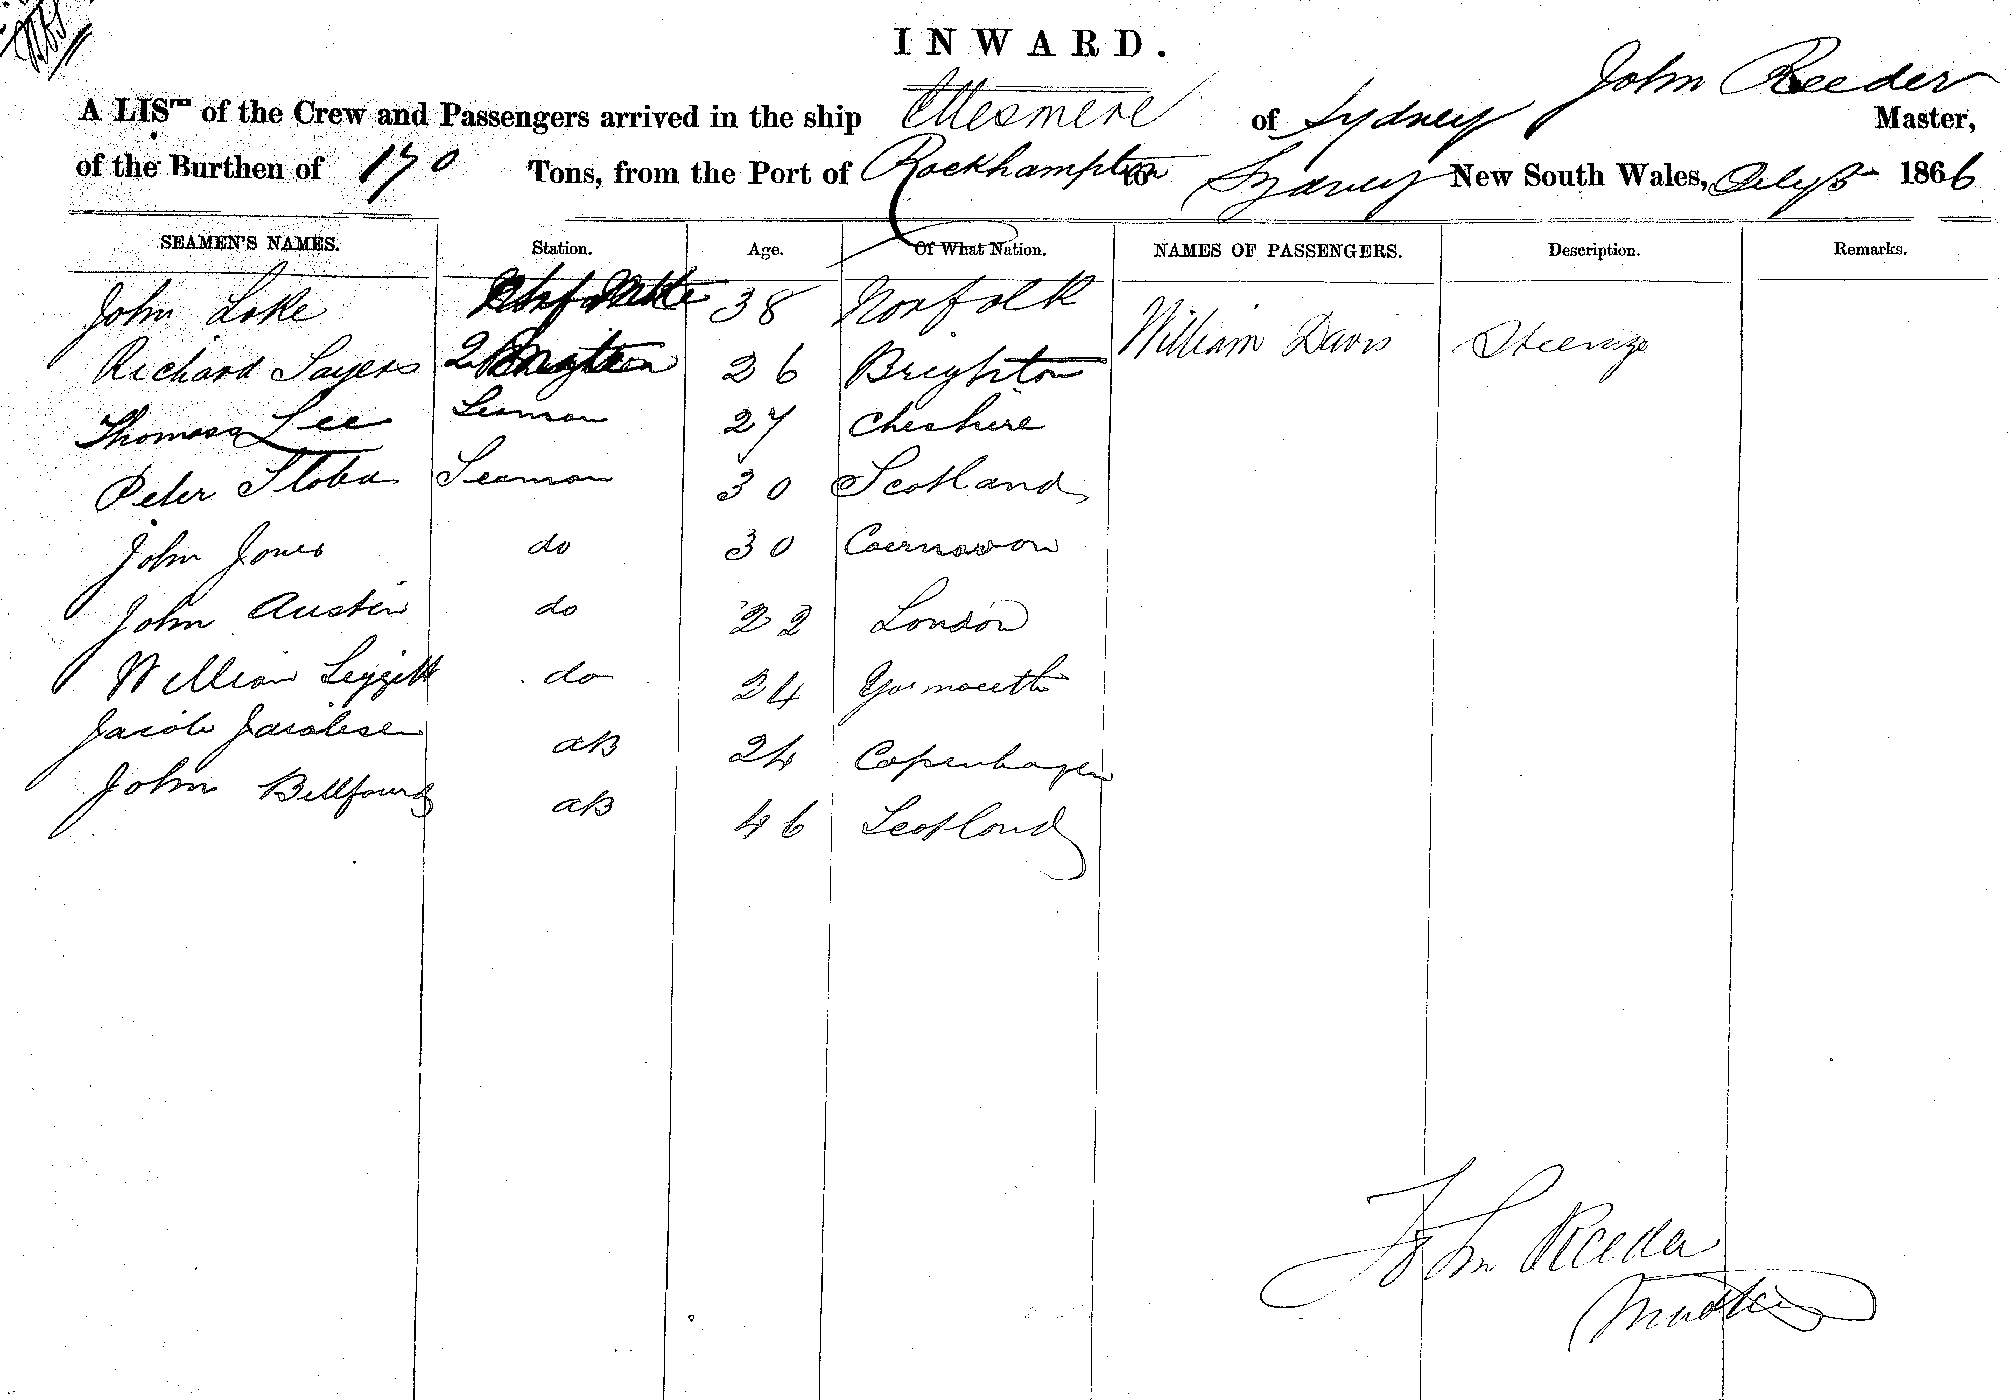 INWARD.
A LIST of the Crew and Passengers arrived in the ship Ellesmere of Sydney John Reeder Master,
of the Burthen of 170 Tons, from the Port of Rockhampton to Sydney New South Wales, July 5 1866
SEAMEN'S NAMES. Station. Age. Of What Nation. NAMES OF PASSENGERS. Description. Remarks.
John Lake 38 Norfolk
William Davis Steerage
Richard Sayers 2 26 Brighton
Thomas Lee Seaman 27 Cheshire
Peter Seaman 30 Scotland
John Jones do 30 Caernavon
John Austin do 22 London
William Leggett do 24 Yarmouth
Jacob Jacobsen AB 24 Copenhagen
John Billfourd AB 46 Scotland
John Reeder
Master